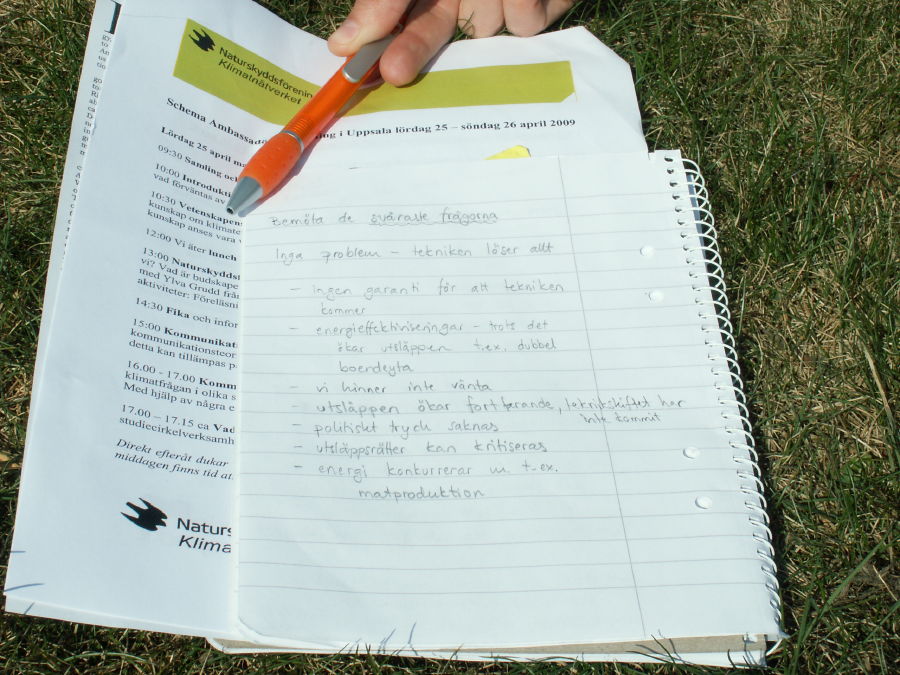 Naturskyddsförenin
Klimatnätverket
Schema Ambassadö ng i Uppsala lördag 25 – söndag 26 april 2009
Lördag 25 april
09:30 Samling oc
10:00 Introdukti
vad förväntas av
10:30 Vetenskapen
kunskap om klimate
kunskap anses vara
12:00 Vi äter lunch
13:00 Naturskydds
vi? Vad är budskape
med Ylva Grudd frå
aktiviteter: Föreläsni
14:30 Fika och infor
15:00 Kommunikat
kommunikationsteor
detta kan tillämpas p
16.00 - 17.00 Komm
klimatfrågan i olika s
Med hjälp av några e
17.00 – 17.15 ca Vad
studiecirkelverksamh
Direkt efteråt dukar
middagen finns tid at
Naturs
Klima
Bemöta de svåraste frågorna
Inga problem – tekniken löser allt
- ingen garanti för att tekniken
kommer
- energieffektiviseringar - trots det
ökar utsläppen t.ex. dubbel
boendeyta
- vi hinner inte vänta
- utsläppen ökar fortfarande, teknikskiftet har
inte kommit
- politiskt tryck saknas
- utsläppsrätter kan kritiseras
- energi konkurrerar m. t.ex.
matproduktion